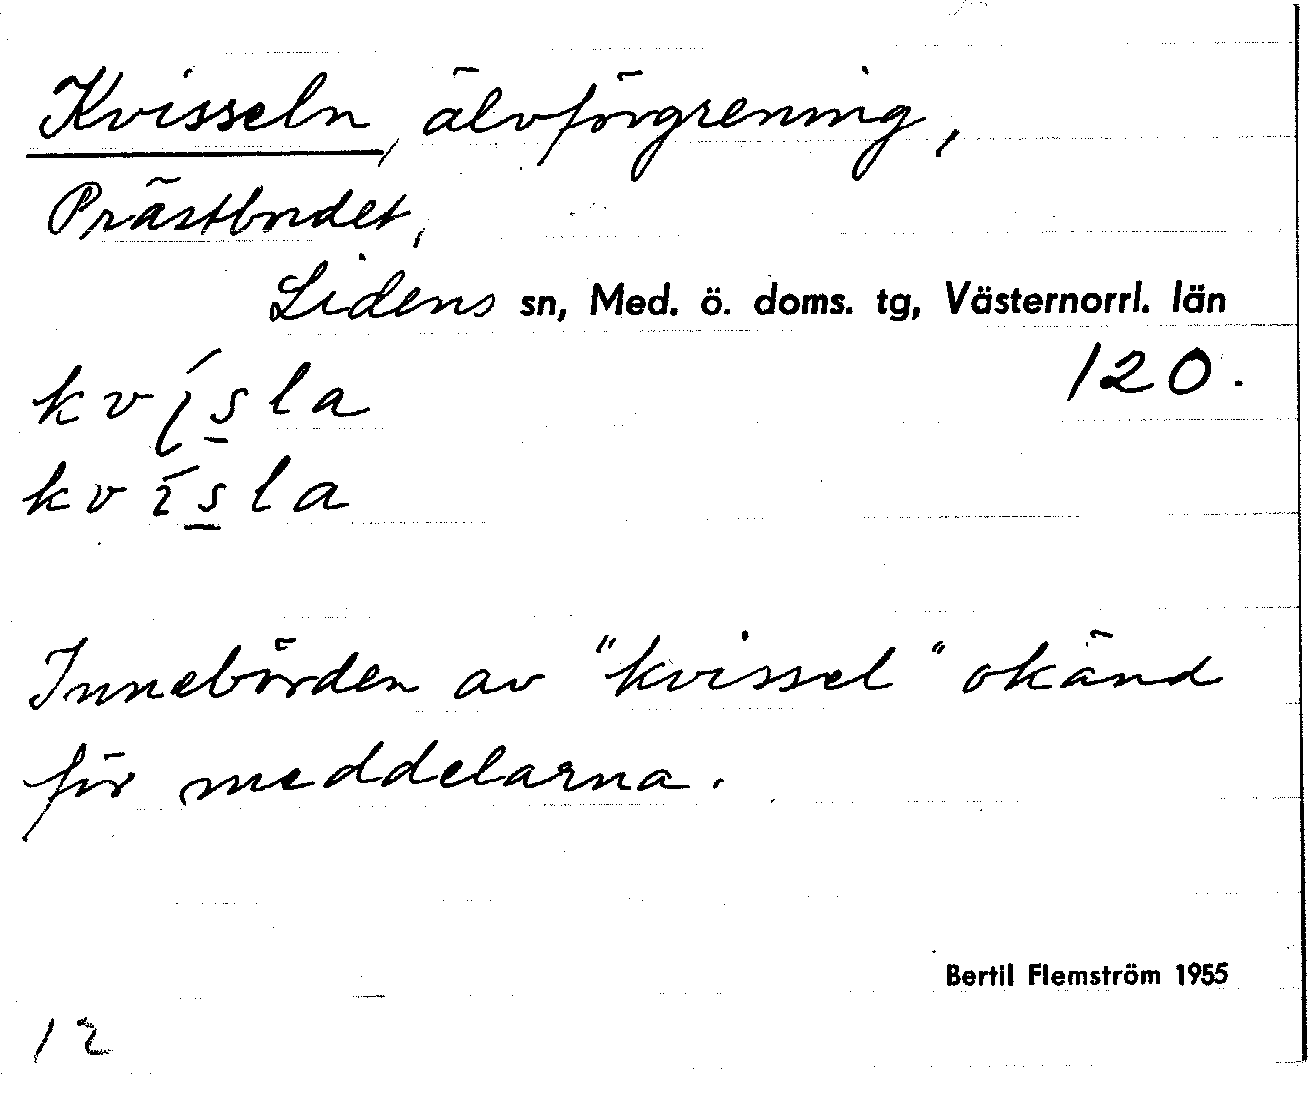 Kvisseln, älvförgrening,
Prästbordet,
Lidens sn, Med. ö. doms. tg, Västernorrl. län
120.
kví̮s̲la
kvís̲la
Innebörden av "kvissel" okänd
för meddelarna.
Bertil Flemström 1955
12